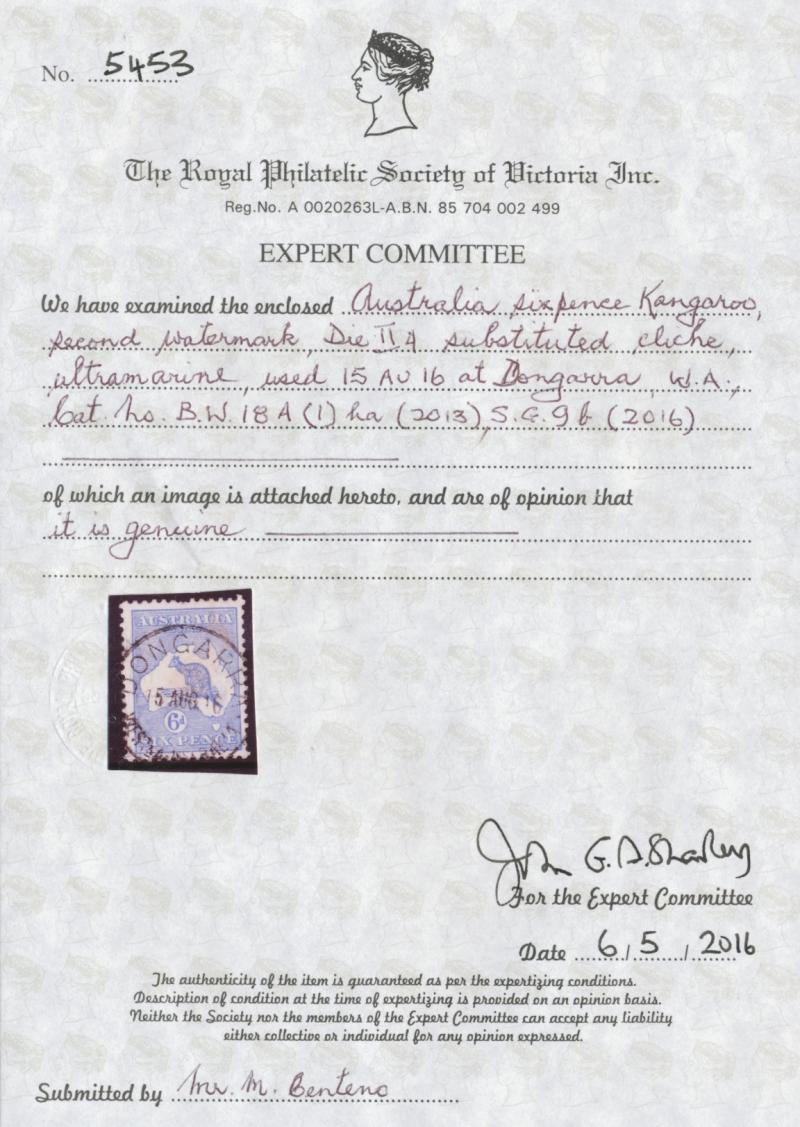 No. 5453
The Royal Philatelic Society of Victoria Inc.
Reg.No. A 0020263L-A.B.N. 85 704 002 499
EXPERT COMMITTEE
We have examined the enclosed Australia sixpence Kangaroo,
second watermark, Die II A substituted cliche,
ultramarine, used 15 AU 16 at Dongarra, W.A.,
Cat. No. B.W. 18A(1)ha (2013), S.G. 9b (2016)
of which an image is attached hereto, and are of opinion that
it is genuine
AUSTRALIA
DONGARRA
15 AUG 16
6d
SIX PENCE
John G.
For the Expert Committee
Date 6/5/2016
The authenticity of the item is guaranteed as per the expertizing conditions.
Description of condition at the time of expertizing is provided on an opinion basis.
Neither the Society nor the members of the Expert Committee can accept any liability
either collective or individual for any opinion expressed.
Submitted by Mr. M. Benteno